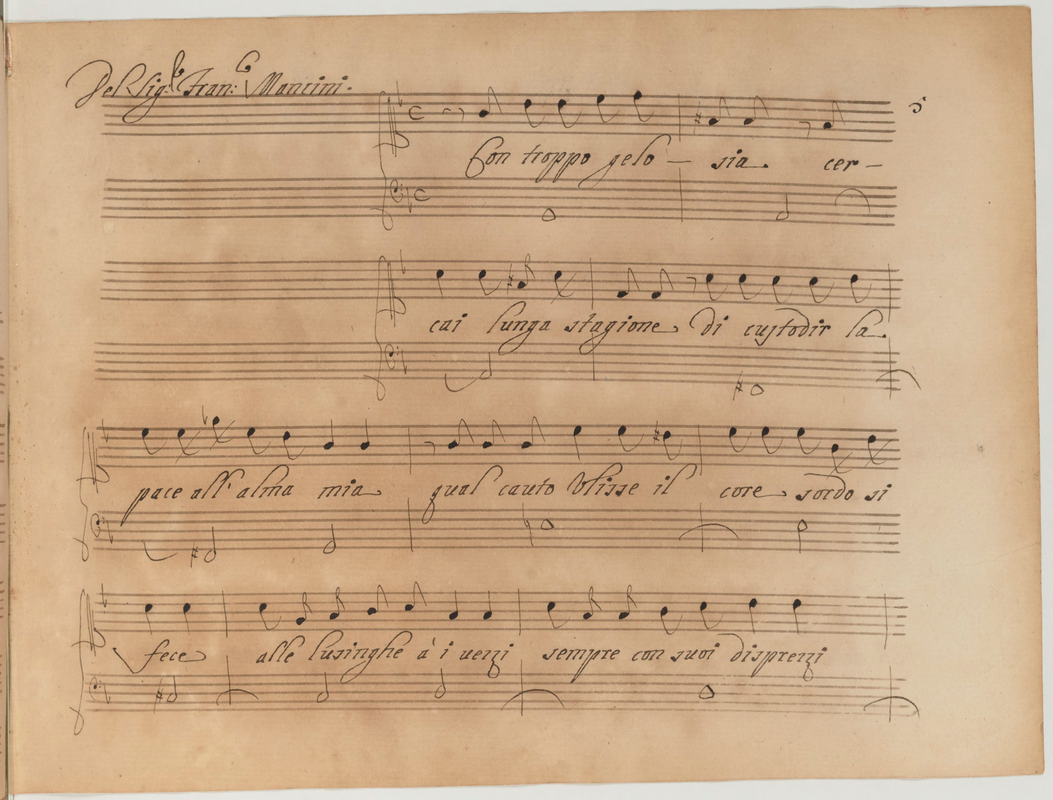 Del Sig.r Fran:co Mancini.
Con troppo gelo — sia cer —
cai lunga stagione di custodir la
pace all' alma mia qual cauto Ulisse il core sordo si
fece alle lusinghe à i uezzi sempre con suoi disprezzi